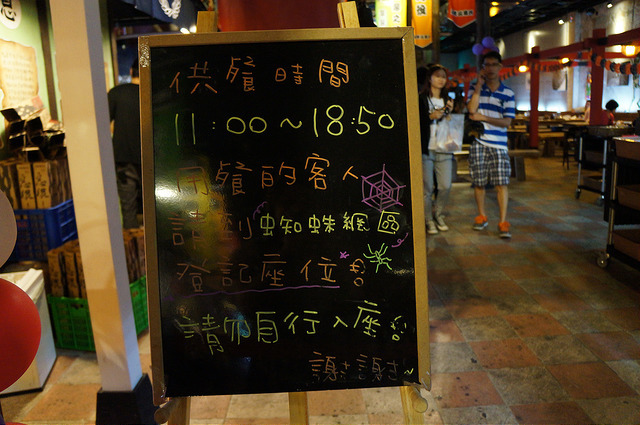 供餐時間
11:00~18:50
用餐的客人
請到蜘蛛網區
登記座位
請勿自行入座
謝謝~